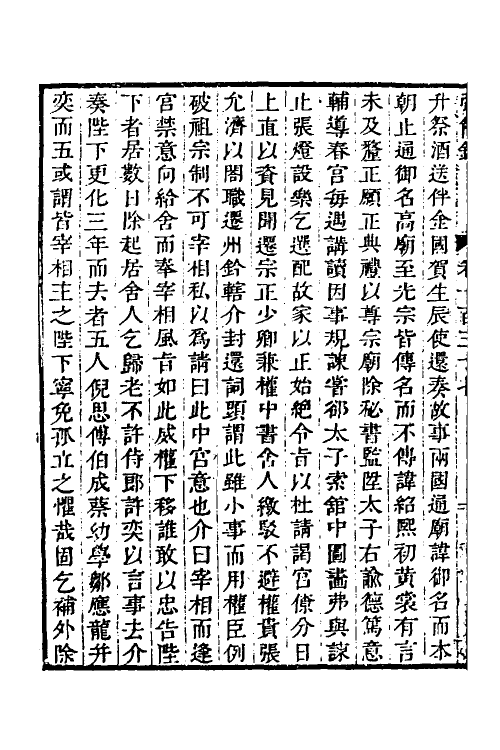 升祭酒送伴金國賀生辰使還奏故事兩國通廟諱御名而本
朝止通御名高廟至光宗皆傳名而不傳諱紹熙初黃裳有言
未及釐正願正典禮以尊宗廟除祕書監陞太子右諭德篤意
輔導春宮每遇講讀因事規諫嘗卻太子索館中圖畵弗與諫
止張燈設樂乞選配故家以正始絶令㫖以杜請謁官僚分日
上直以資見聞遷宗正少卿兼權中書舍人繳駁不避權貴張
允濟以閤職遷州鈐轄介封還詞頭謂此雖小事而用權臣例
破祖宗制不可宰相私以為請曰此中宮意也介曰宰相而逢
宮禁意向給舍而奉宰相風㫖如此威權下移誰敢以忠告陛
下者居數日除起居舍人乞歸老不許侍郎許奕以言事去介
奏陛下更化三年而去者五人倪思傅伯成蔡幼學鄒應龍并
奕而五或謂皆宰相主之陛下寧免孤立之懼哉固乞補外除